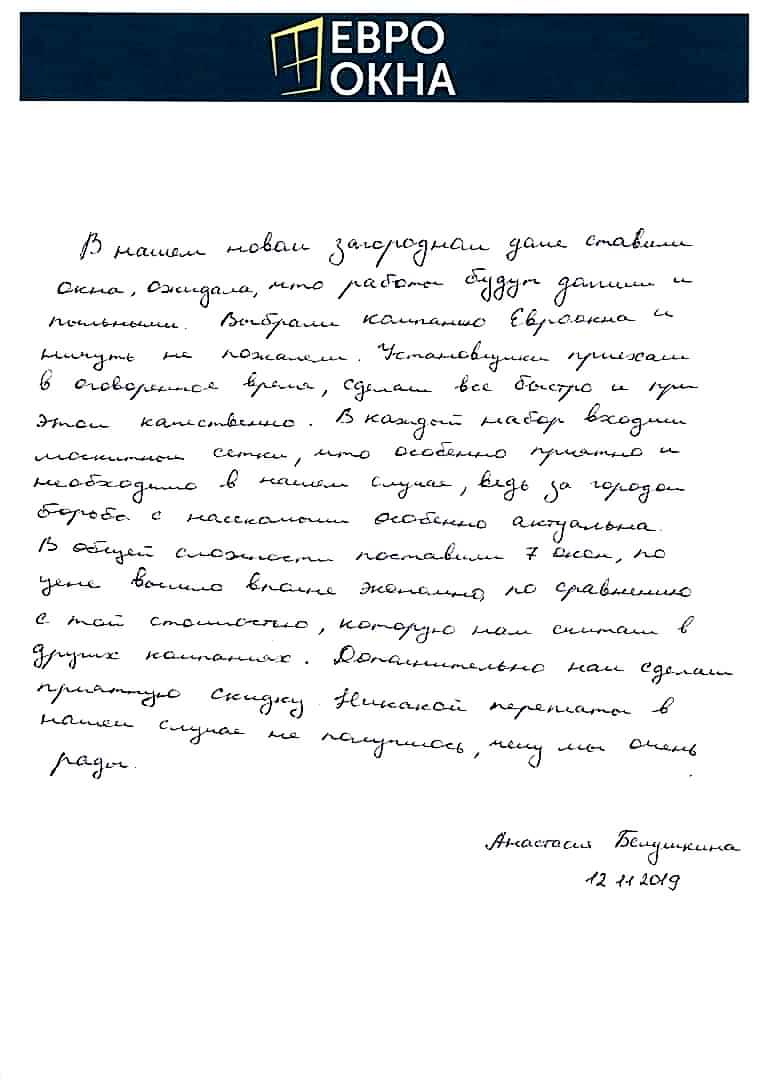 ЕВРО
ОКНА
В нашем новом загородном доме ставили
окна, ожидала, что работы будут долгими и
пыльными. Выбрали компанию Евроокна и
ничуть не пожалели. Установщики приехали
в оговоренное время, сделали все быстро и при
этом качественно. В каждый набор входили
москитные сетки, что особенно приятно и
необходимо в нашем случае, ведь за городом
борьба с насекомыми особенно актуальна.
В общей сложности поставили 7 окон, по
цене вышло вполне экономно, по сравнению
с той стоимостью, которую нам считали в
других компаниях. Дополнительно нам сделали
приятную скидку. Никакой переплаты в
нашем случае не получилось, чему мы очень
рады.
Анастасия Белушкина
12 11 2019